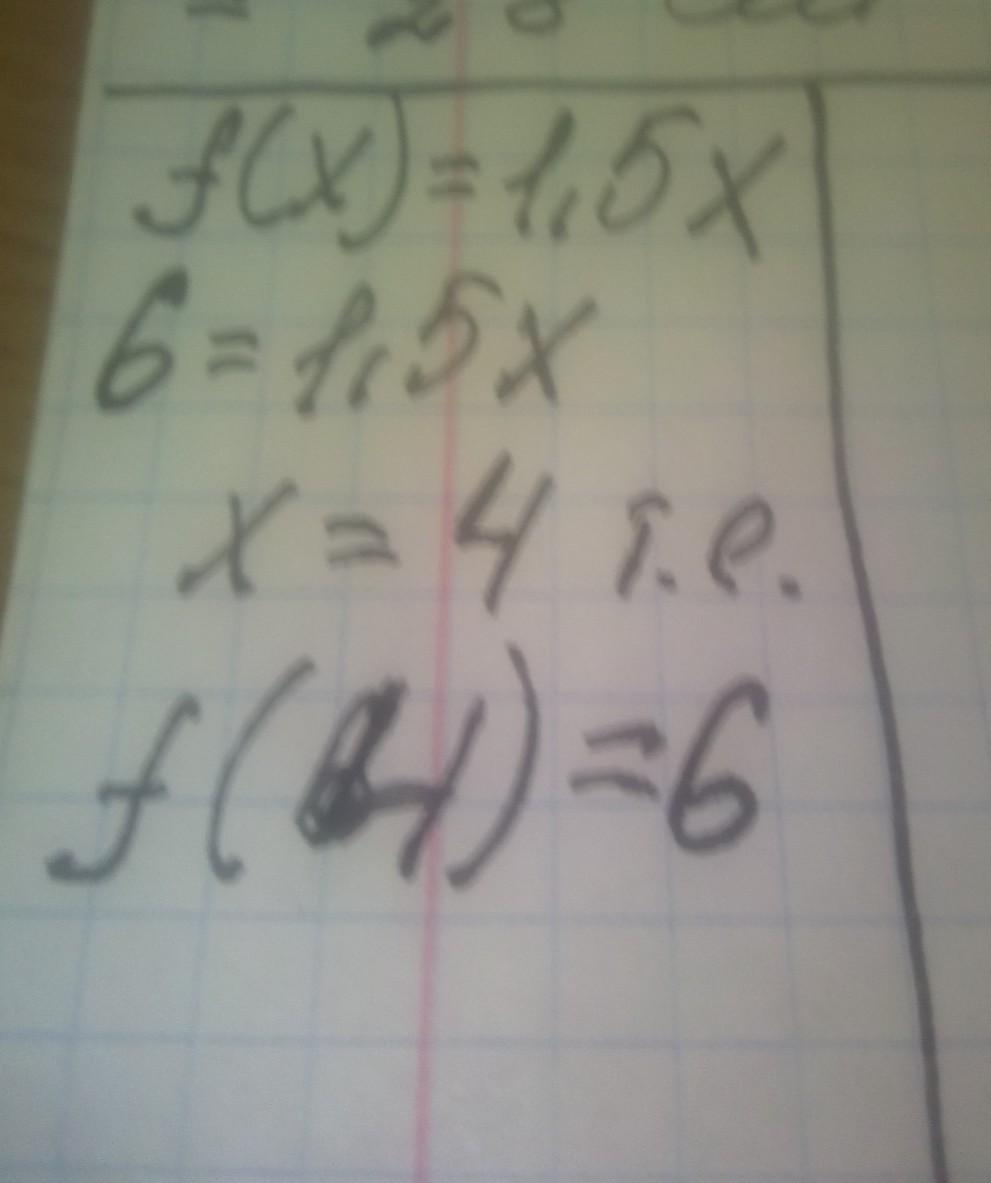 f(x)=1,5x
6=1,5x
x=4 т.е.
f(4)=6